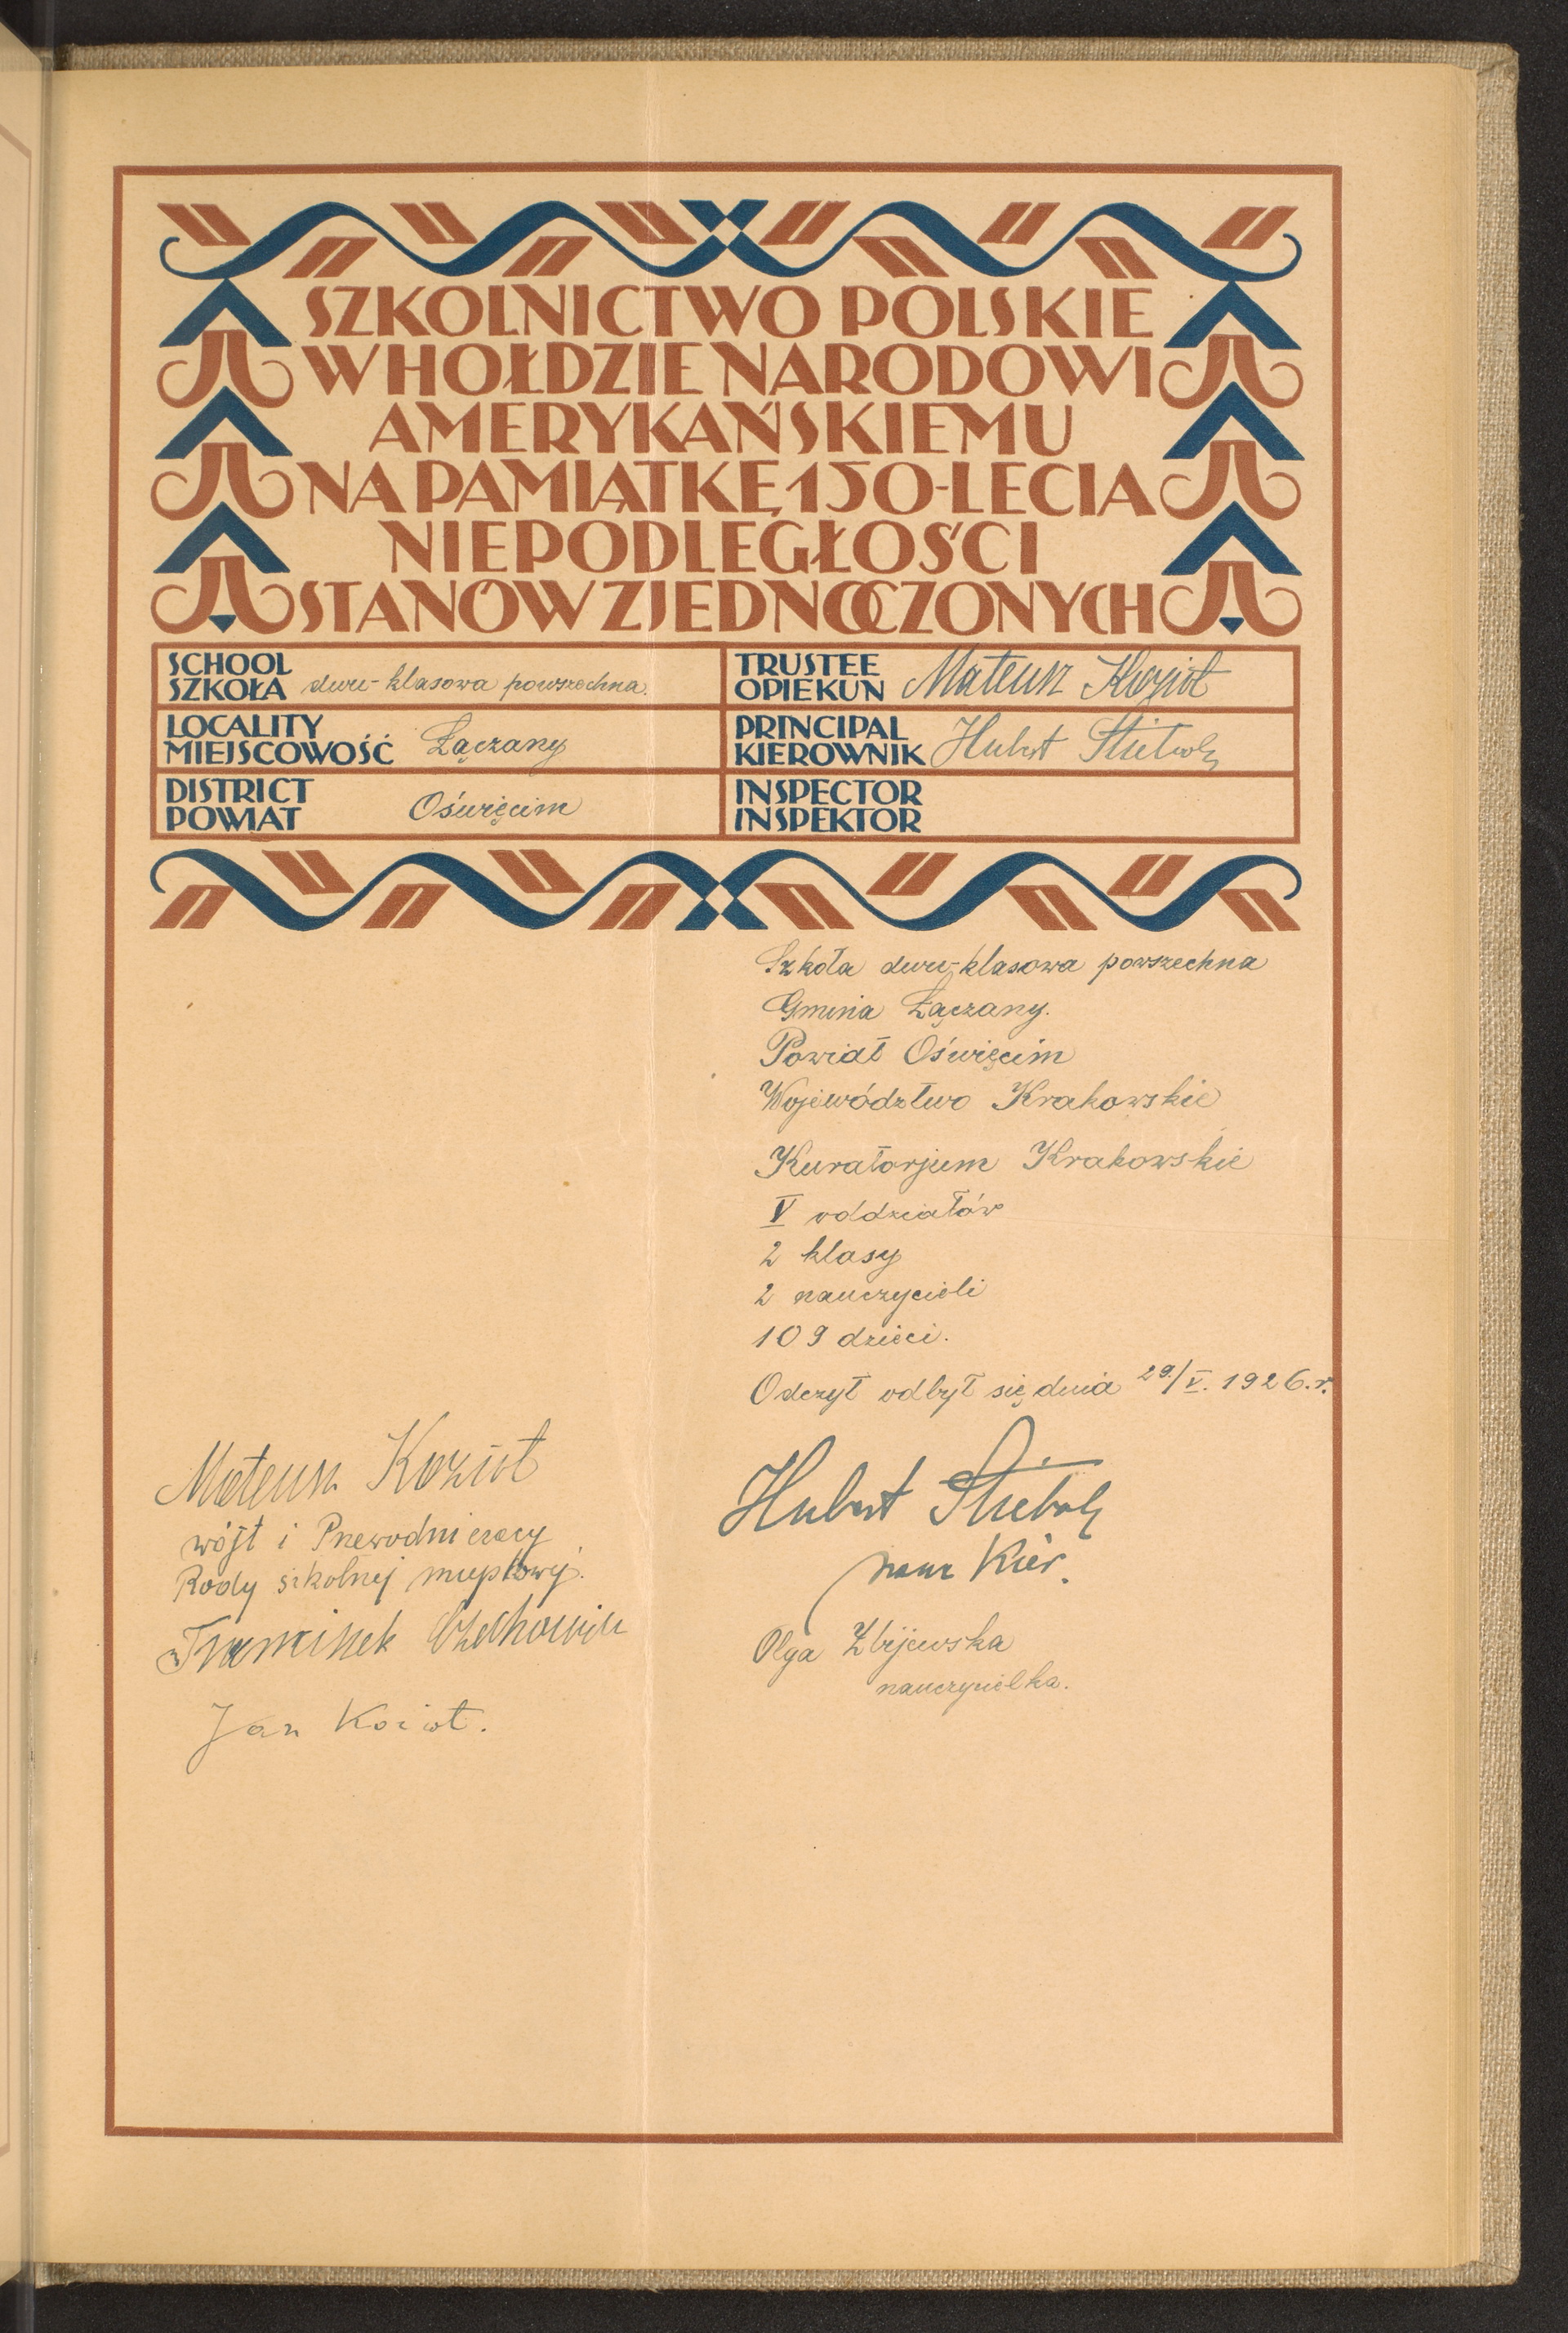 SZKOLNICTWO POLSKIE
W HOŁDZIE NARODOWI
AMERYKAŃSKIEMU
NA PAMIĄTKĘ 150-LECIA
NIEPODLEGŁOŚCI
STANÓW ZJEDNOCZONYCH
SCHOOL
SZKOŁA dwu-klasowa powszechna.
TRUSTEE
OPIEKUN Mateusz Kozioł
LOCALITY
MIEJSCOWOŚĆ Łączany
PRINCIPAL
KIEROWNIK Hubert
DISTRICT
POWIAT Oświęcim
INSPECTOR
INSPEKTOR
Szkoła dwu-klasowa powszechna
Gmina Łączany.
Powiat Oświęcim
Województwo Krakowskie
Kuratorjum Krakowskie
V oddziałów
2 klasy
2 nauczycieli
109 dzieci.
Odczyt odbył się dnia 29/V. 1926.r.
Mateusz Kozioł
wójt i Przewodniczący
Rady szkolnej miejscowej.
Franciszek
Jan
Hubert
naucz Kier.
Olga Zbijewska
nauczycielka.